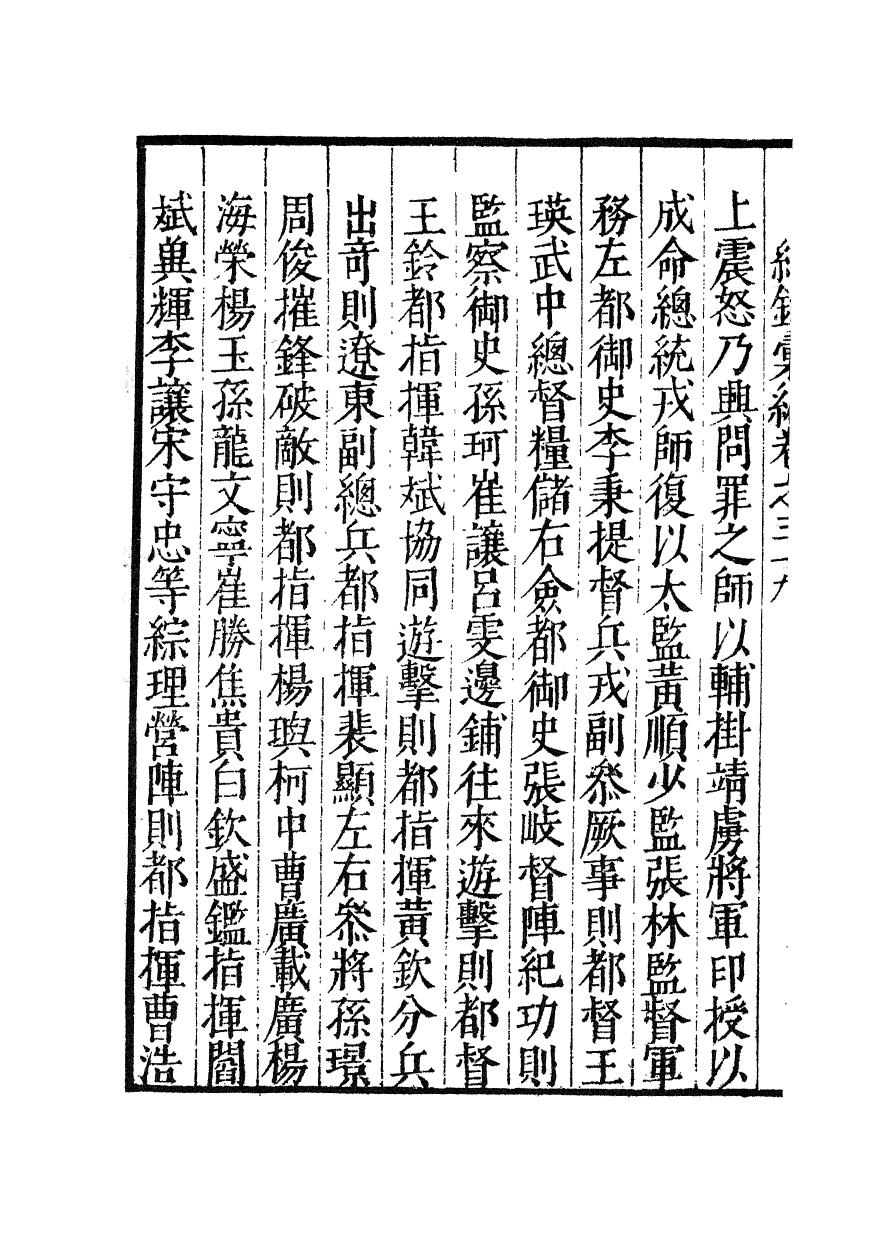 紀錄彙編卷之三十九
上震怒乃興問罪之師以輔掛靖虜將軍印授以
成命總統戎師復以太監黃順少監張林監督軍
務左都御史李秉提督兵戎副叅厥事則都督王
瑛武中總督糧儲右僉都御史張岐督陣紀功則
監察御史孫珂崔讓呂雯邊鋪往來遊擊則都督
王鈴都指揮韓斌協同遊擊則都指揮黃欽分兵
出竒則遼東副總兵都指揮裴顯左右叅將孫璟
周俊摧鋒破敵則都指揮楊璵柯中曹廣載廣楊
海榮楊玉孫龍文寧崔勝焦貴白欽盛鑑指揮閻
斌兾輝李讓宋守忠等綜理營陣則都指揮曹浩